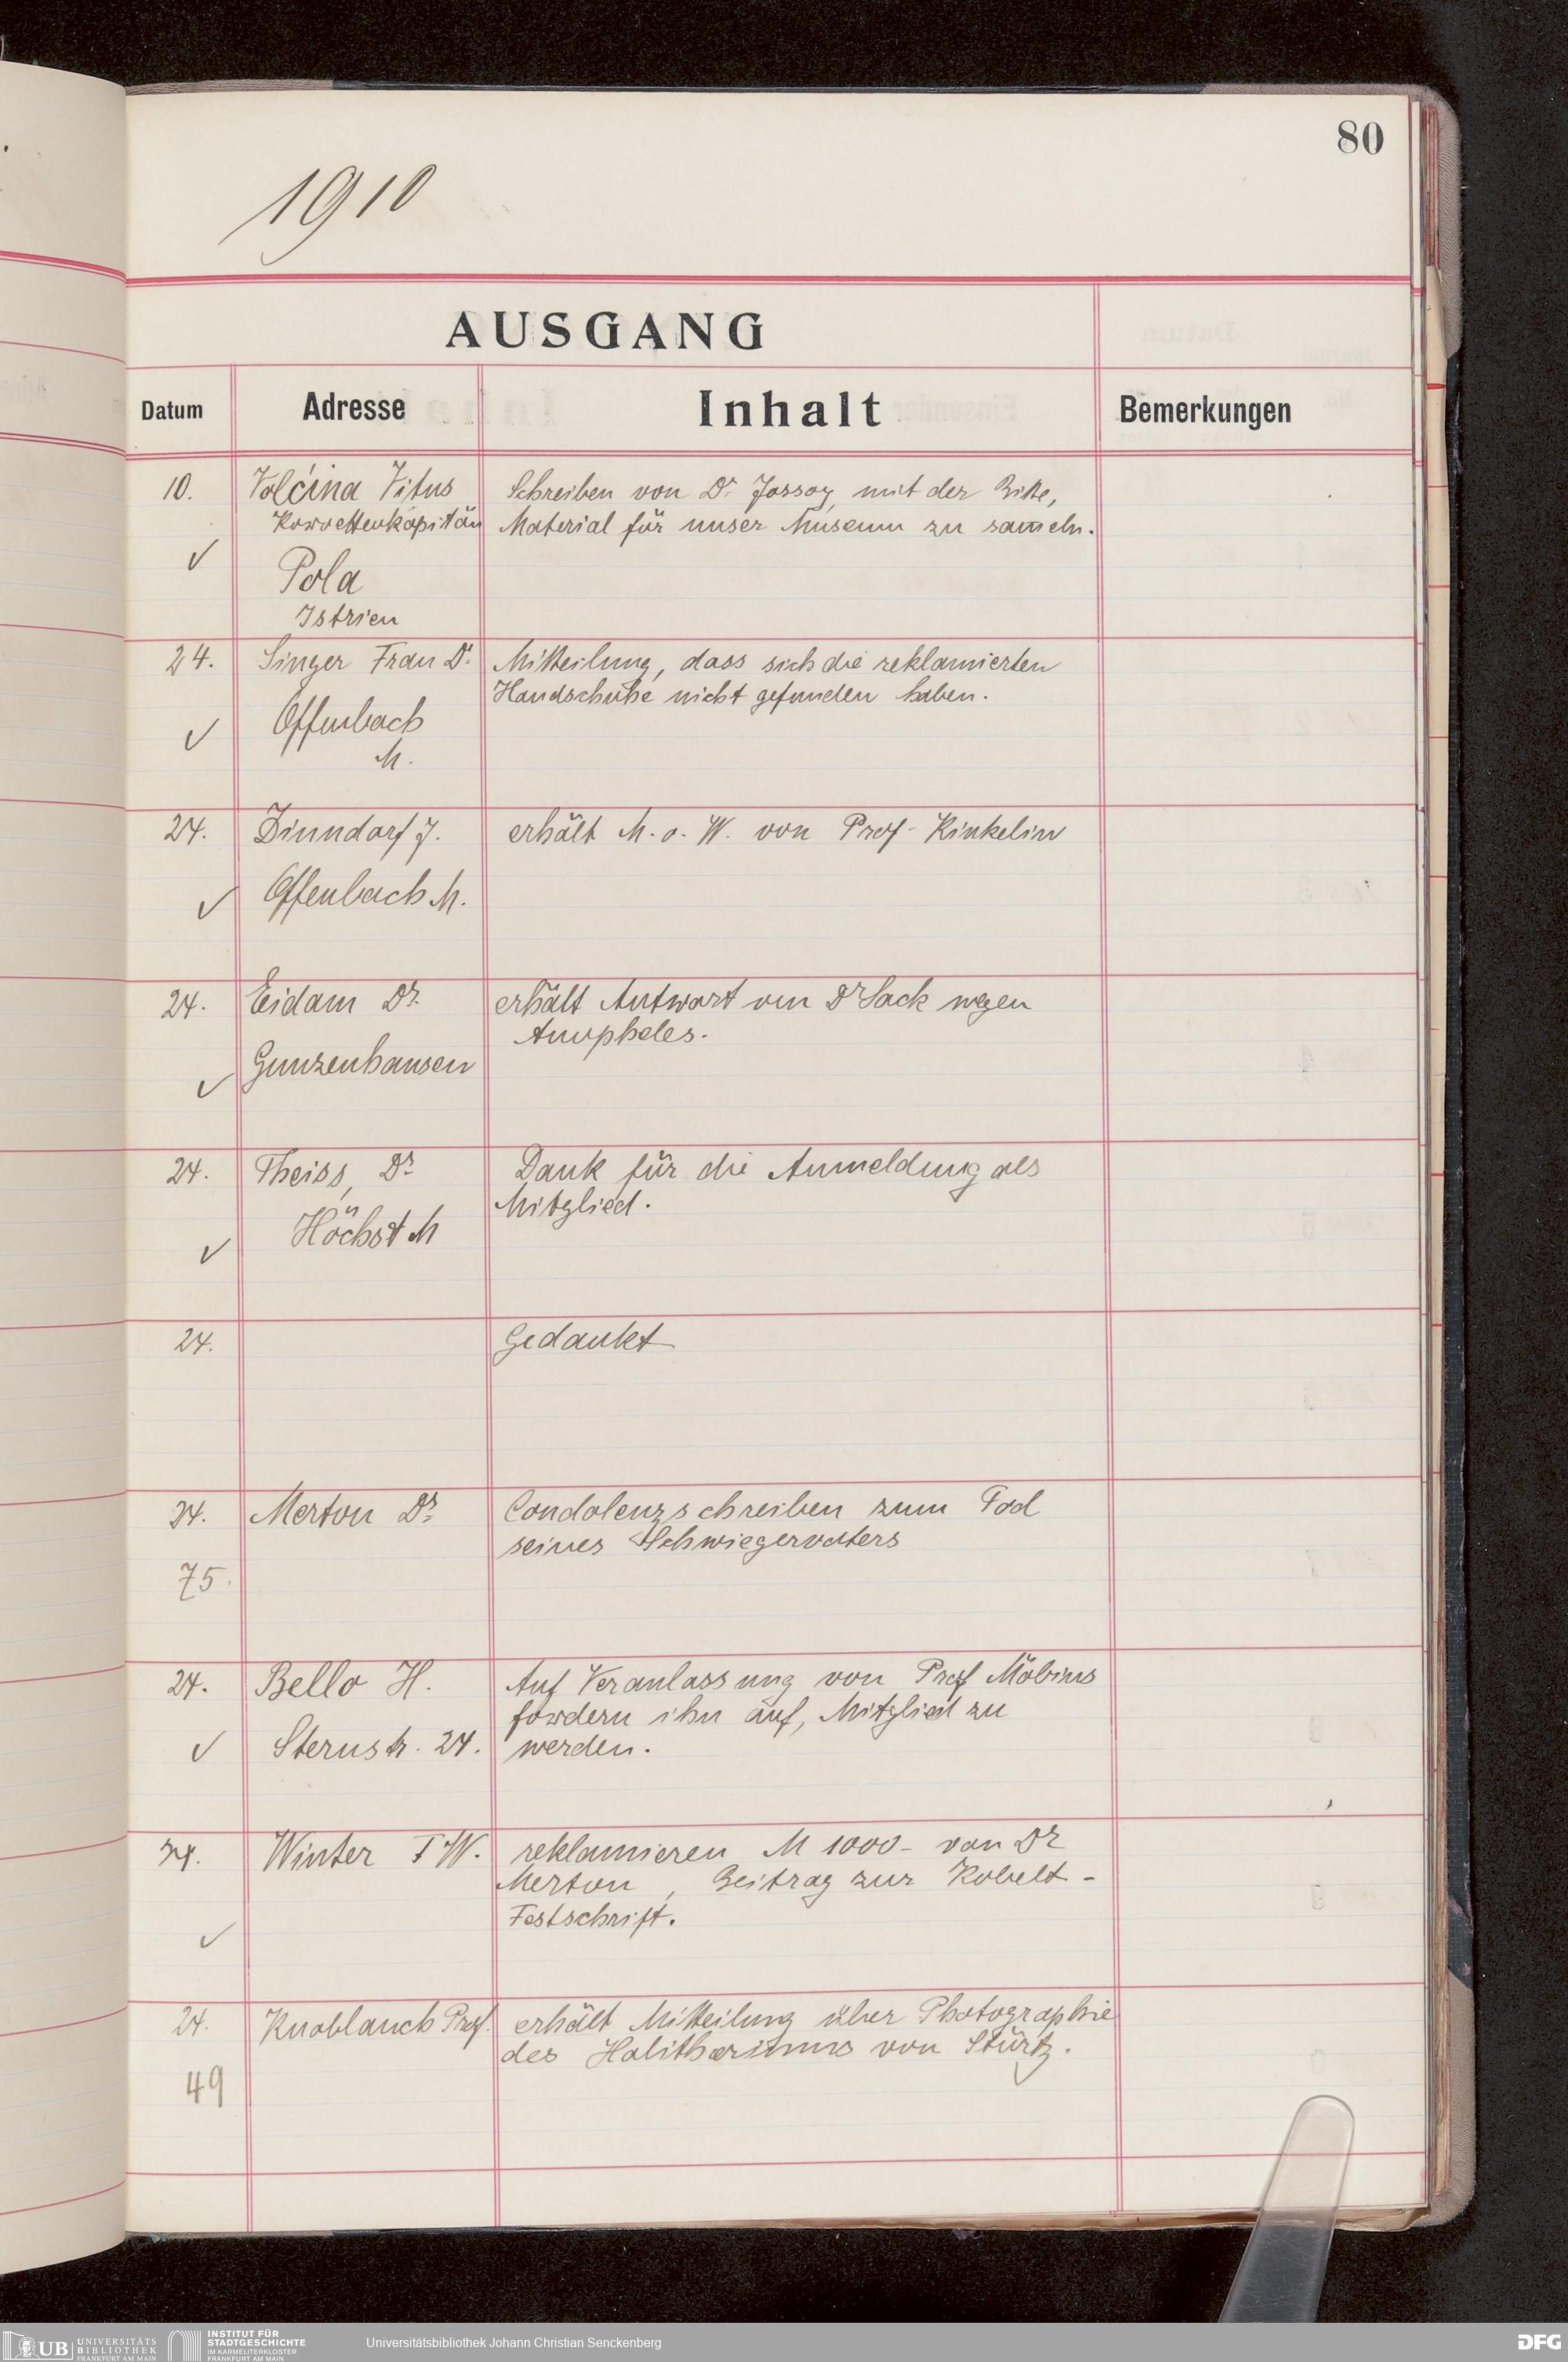 80
1910
AUSGANG
Datum Adresse Inhalt Bemerkungen
10. Volćina Vitus Schreiben von Dr. Jassoy, mit der Bitte,
Korvettenkapitän Material für unser Museum zu sam̄eln.
✓ Pola
Istrien
24. Singer Frau Dr. Mitteilung, dass sich die reklamierten
Handschuhe nicht gefunden haben.
✓ Offenbach
M.
24. Dinndorf J. erhält M. o. W. von Prof. Kinkelin
✓ Offenbach M.
24. Eidam Dr. erhält Antwort von Dr Sack wegen
Anopheles.
✓ Gunzenhausen
24. Theiss, Dr. Dank für die Anmeldung als
Mitglied.
✓ Höchst M
24. Gedankt
24. Merton Dr. Condolenzschreiben zum Tod
seines Schwiegervaters
75.
24. Bello H. Auf Veranlassung von Prof Möbius
fordern ihn auf, Mitglied zu
✓ Sternstr. 24. werden.
24. Winter F W. reklamieren M 1000- von Dr
Merton, Beitrag zur Kobelt-
Festschrift.
✓
24. Knoblauch Prof. erhält Mitteilung über Photographie
des Halitheriums von Stürtz.
49
UB UNIVERSITÄTS
BIBLIOTHEK
FRANKFURT AM MAIN
INSTITUT FÜR
STADTGESCHICHTE
IM KARMELITERKLOSTER
FRANKFURT AM MAIN
Universitätsbibliothek Johann Christian Senckenberg
DFG